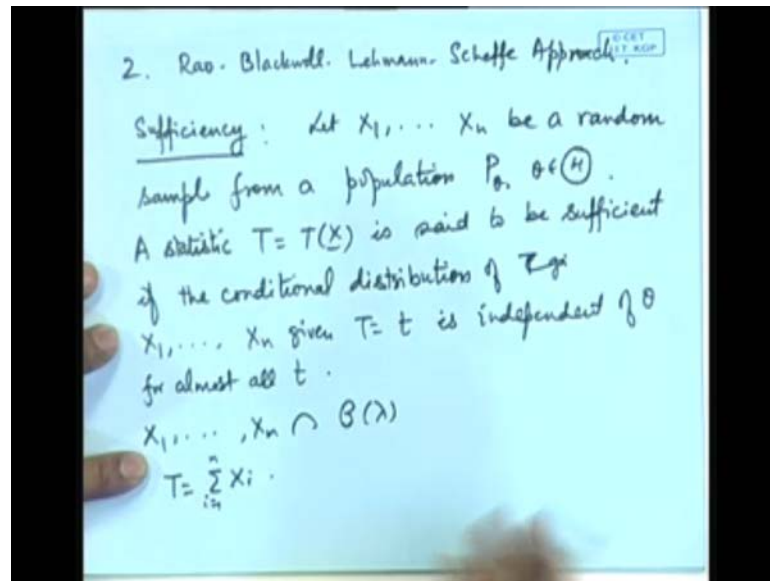 2. Rao-Blackwell-Lehmann-Scheffe Approach.
Sufficiency : Let X1, ... Xn be a random
sample from a population Pθ, θ∈Ⓗ.
A statistic T = T(X) is said to be sufficient
if the conditional distribution of
X1, ..., Xn given T = t is independent of θ
for almost all t.
X1, ..., Xn ∩ P(λ)
T = Σ Xi.